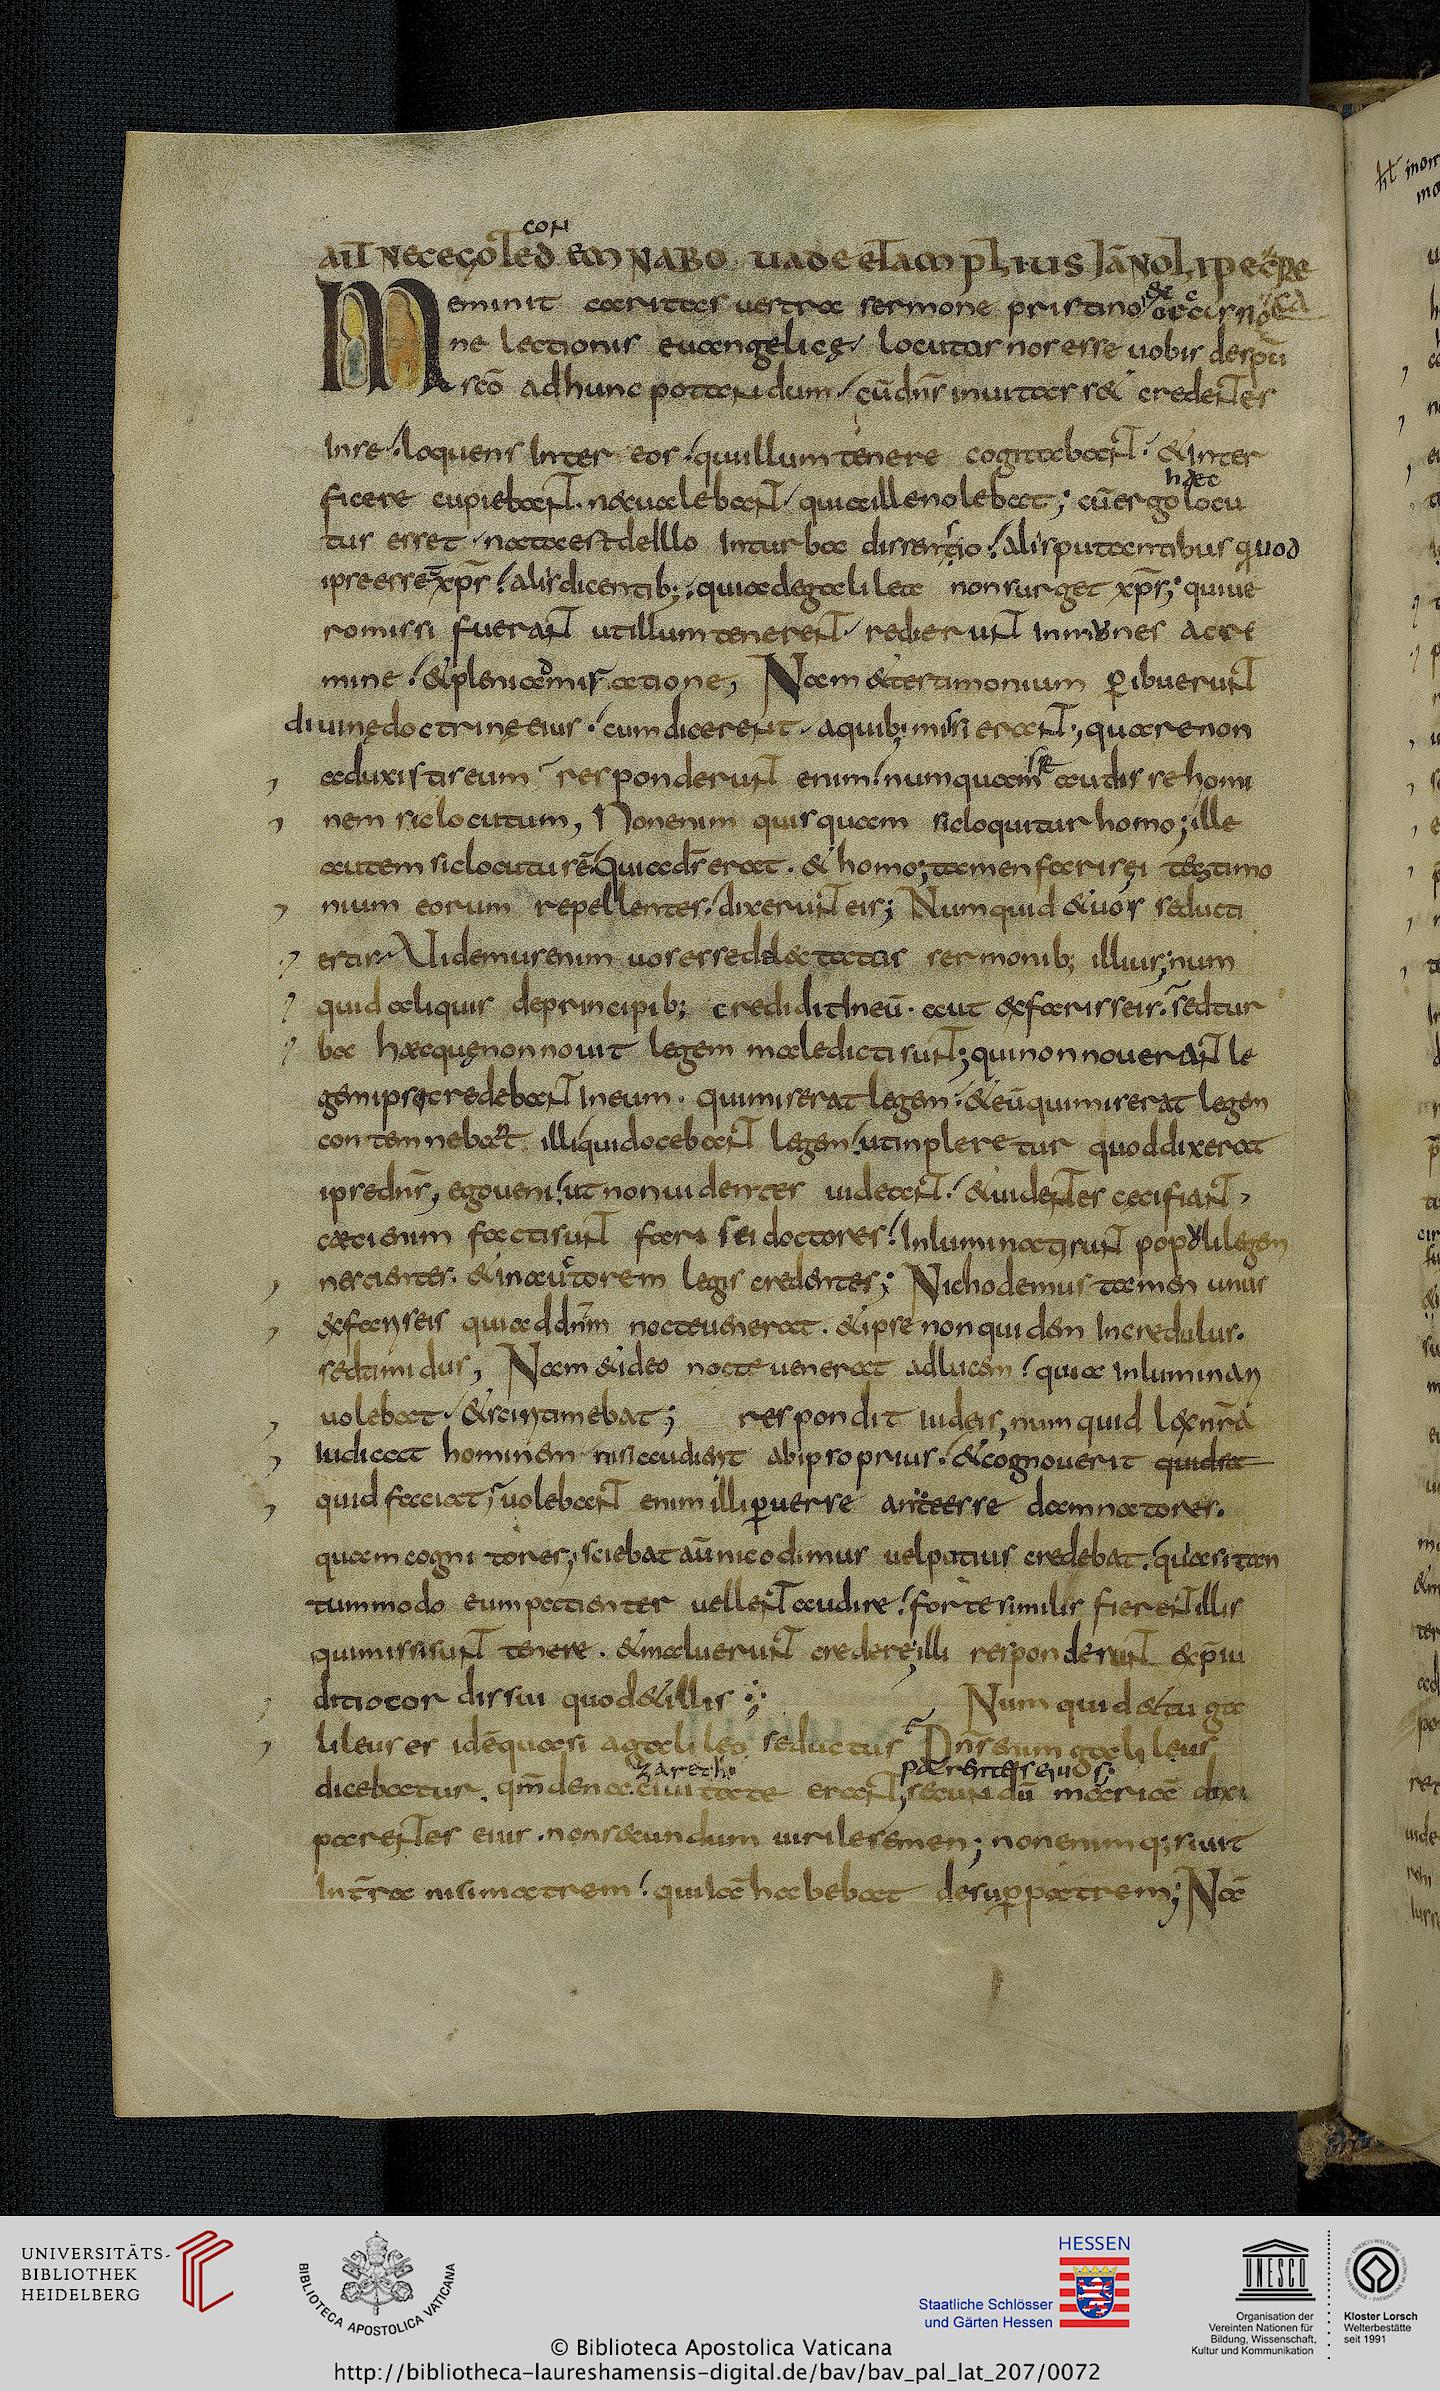 aıt nec ego te condemnabo uade et amplius iā noli peccare
Meminit caritas uestra sermone pristino &
ne lectionis euangelicę locutos nos esse uobis de spū
scō ad hunc potandum cū dn̄s inuitasset credentes
In se loquens Inter eos qui illum tenere cogitabant & inter
ficere cupiebant. n& ualebant quia ille nolebat; cū ergo haec locu
tus esset nata est de Illo In turba dissensio alis putantibus quod
ipse ess& xp̄s alis dicentib; quia de galilea non surget xp̄s; qui ue
ro missi fuerant ut illum tenerent redierunt Inmunes a cri
mine & pleni admiratione, Nam & testimonium p̱ibuerunt
diuinę doctrinę eius cum dicerent a quib; missi erant, quare non
adduxistis eum responderunt enim numquam se audisse homi
nem sic locutum, Non enim quisquam sic loquitur homo; ille
autem sic locutus ē quia d̄s erat. & homo; tamen farisei testimo
nium eorum repellentes dixerunt eis; Numquid & uos seducti
estis Uidemus enim uos esse delectatos sermonib; illius; num
quid aliquis de principib; credidit In eū. aut ex farisseis sed tur
ba haec quę non nouit legem maledicti sunt; qui non nouerant le
gem ipsi credebant In eum. qui miserat legem & eū qui miserat legem
contemnebant illi qui docebant legem ut inpleretur quod dixerat
ipse dn̄s, ego ueni ut non uidentes uideant & uidentes ceci fiant,
caeci enim facti sunt farisei doctores Inluminati sunt populi legem
nescientes. & in auctorem legis credentes; Nichodemus tamen unus
ex fariseis qui ad dn̄m nocte uenerat. & ipse non quidem Incredulus.
sed timidus, Nam & ideo nocte uenerat ad lucem quia inluminari
uolebat & sciri timebat; respondit iudeis, numquid lex nr̄a
iudicat hominem nisi audierit ab ipso prius & cognouerit quid et
quid faciat, uolebant enim illi p̱uerse ante esse damnatores.
quam cognitores, sciebat aū nicodimus uel potius credebat quia si tan
tummodo eum patienter uellent audire forte similis fierent illis
qui missi sunt tenere. & maluerunt credere; illi responderunt & p̄iu
ditio cor dis sui quod & illis Numquid & tu ga
lileus es id ē quasi a galileo seductus Dn̄s enim galileus
dicebatur. qm̄ de nazareth ciuitate erant parentes eius; secundū mariā dixi
parentes eius. non secundum uirile semen; non enim q;siuit
In t̄ra nisi matrem qui iā habebat desup̱ patrem; Nā
UNIVERSITÄTS-
BIBLIOTHEK
HEIDELBERG
BIBLIOTECA APOSTOLICA VATICANA
HESSEN
Staatliche Schlösser
und Gärten Hessen
UNESCO
Organisation der
Vereinten Nationen für
Bildung, Wissenschaft,
Kultur und Kommunikation
Kloster Lorsch
Welterbestätte
seit 1991
© Biblioteca Apostolica Vaticana
http://bibliotheca-laureshamensis-digital.de/bav/bav_pal_lat_207/0072